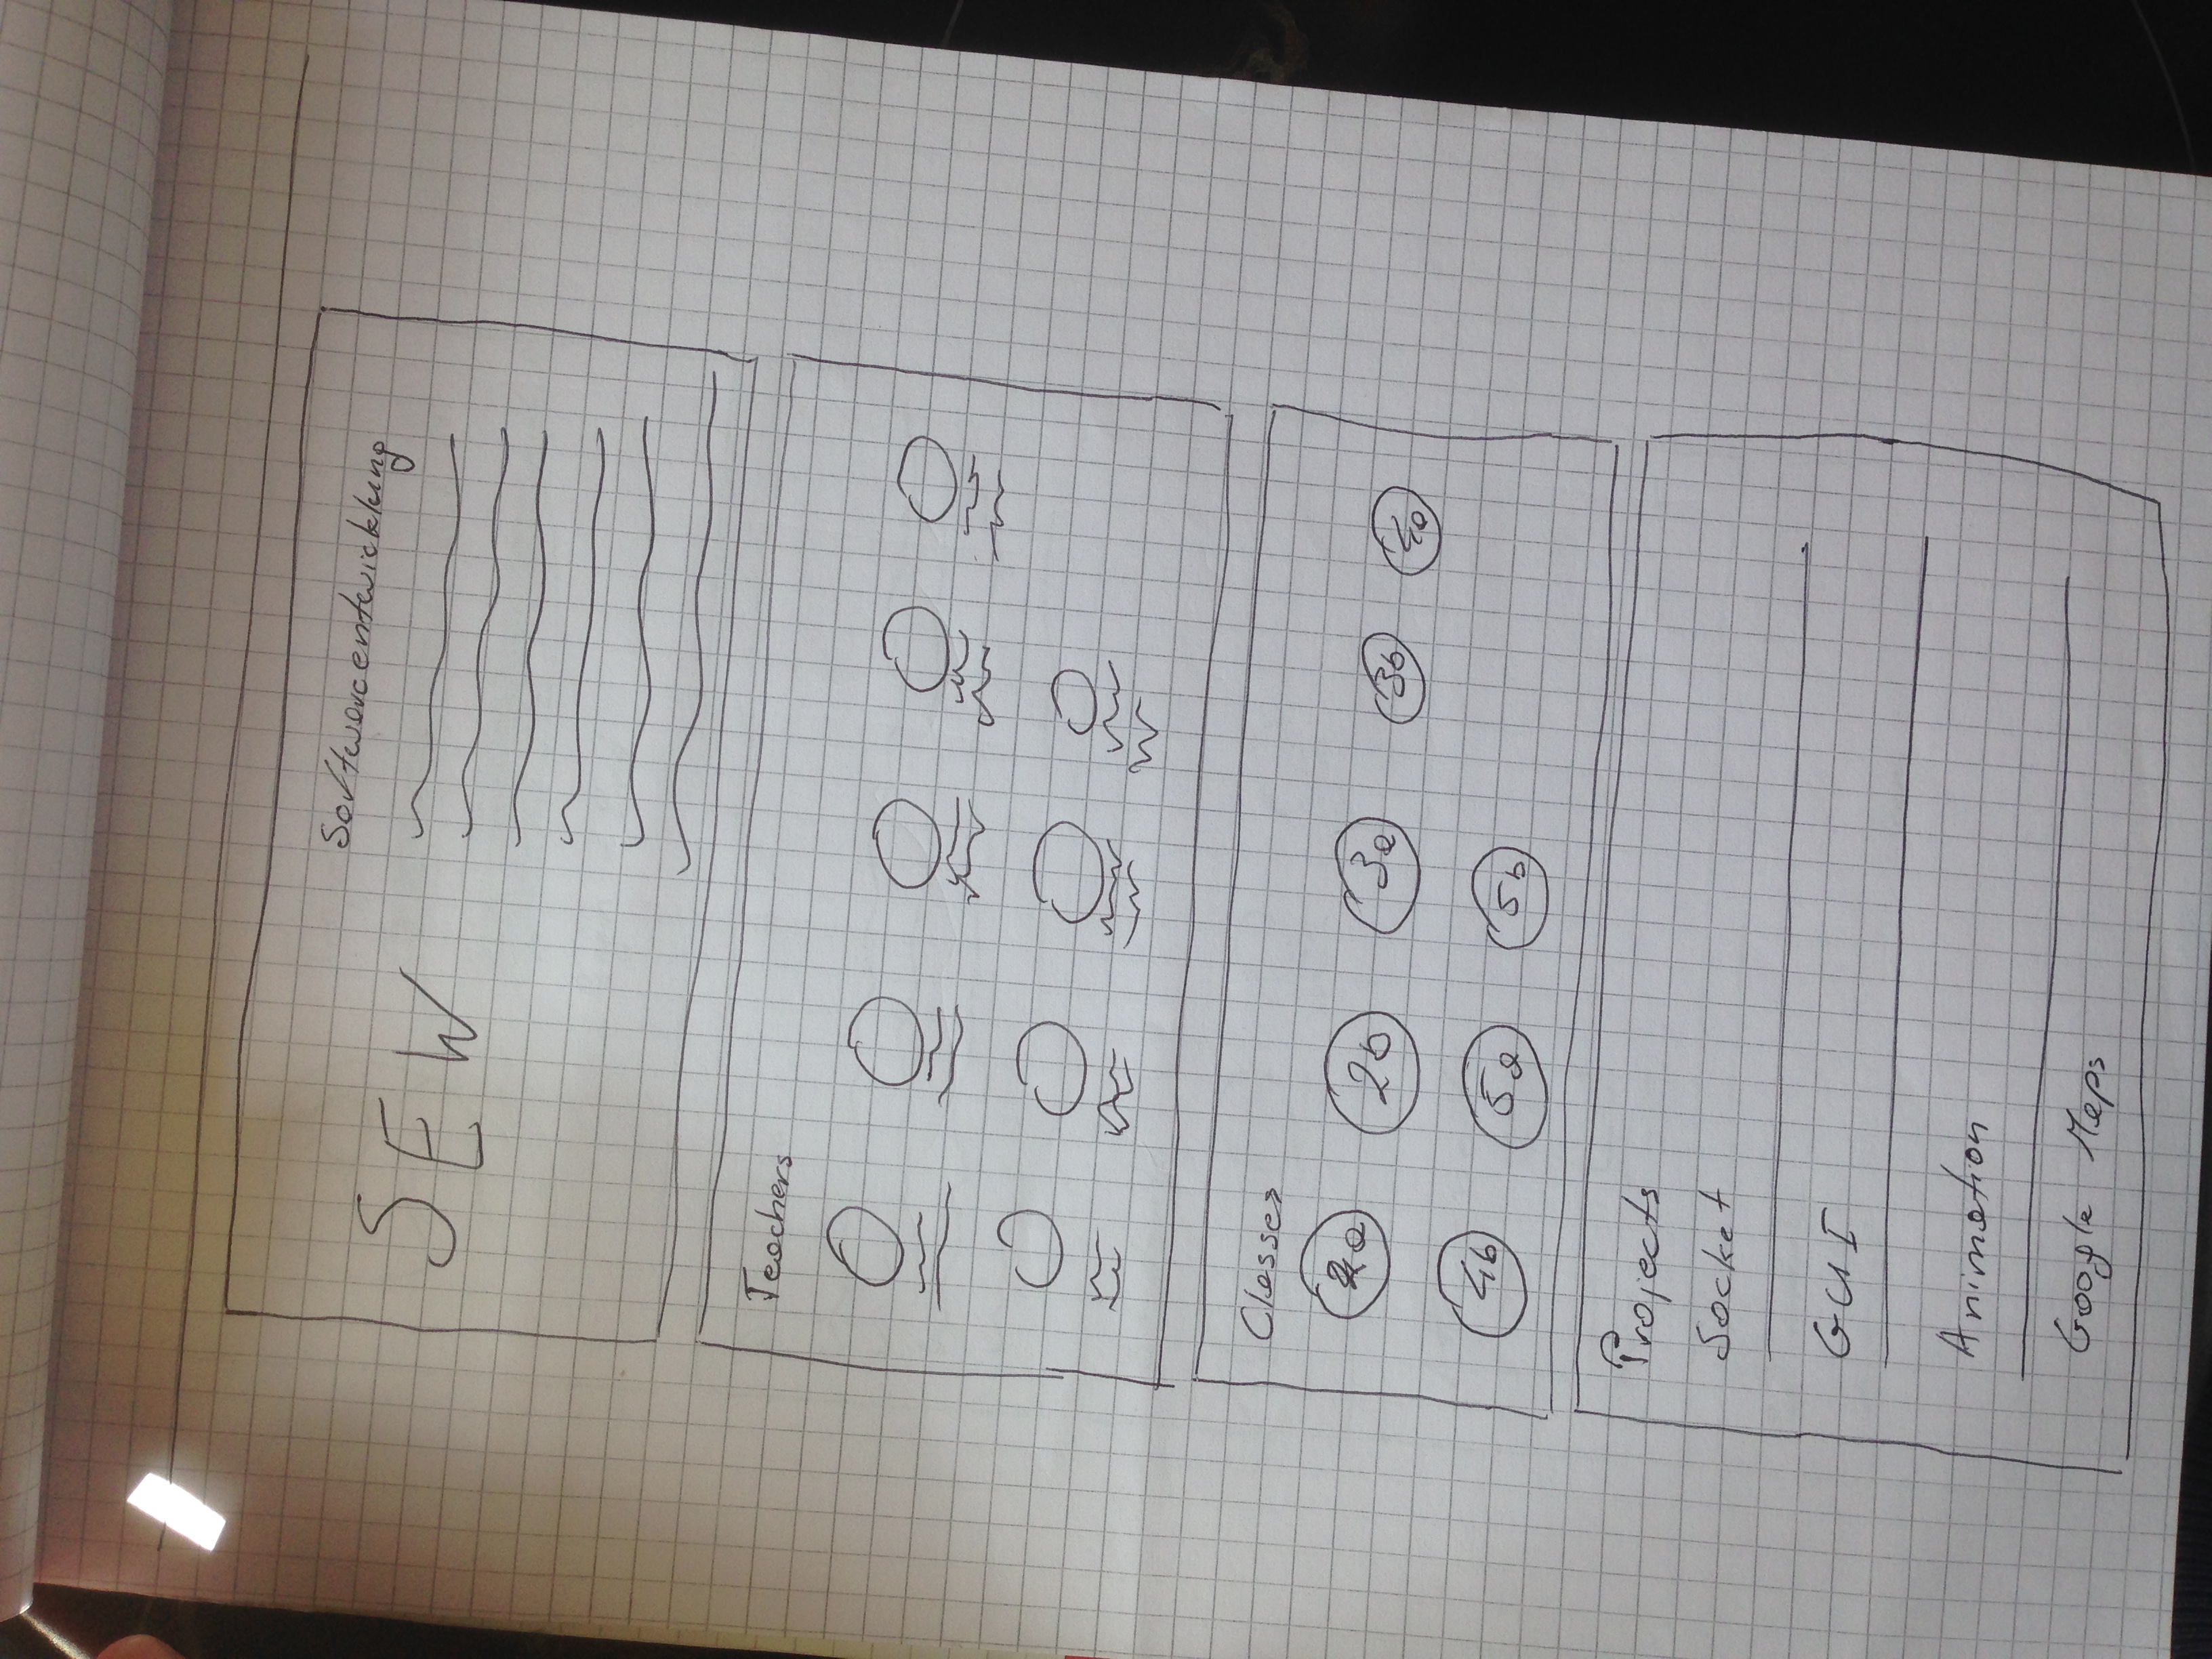 SEW
Softwareentwicklung
Teachers
Classes
2a 2b 3a 3b 4a
4b 5a 5b
Projects
Socket
GUI
Animation
Google Maps